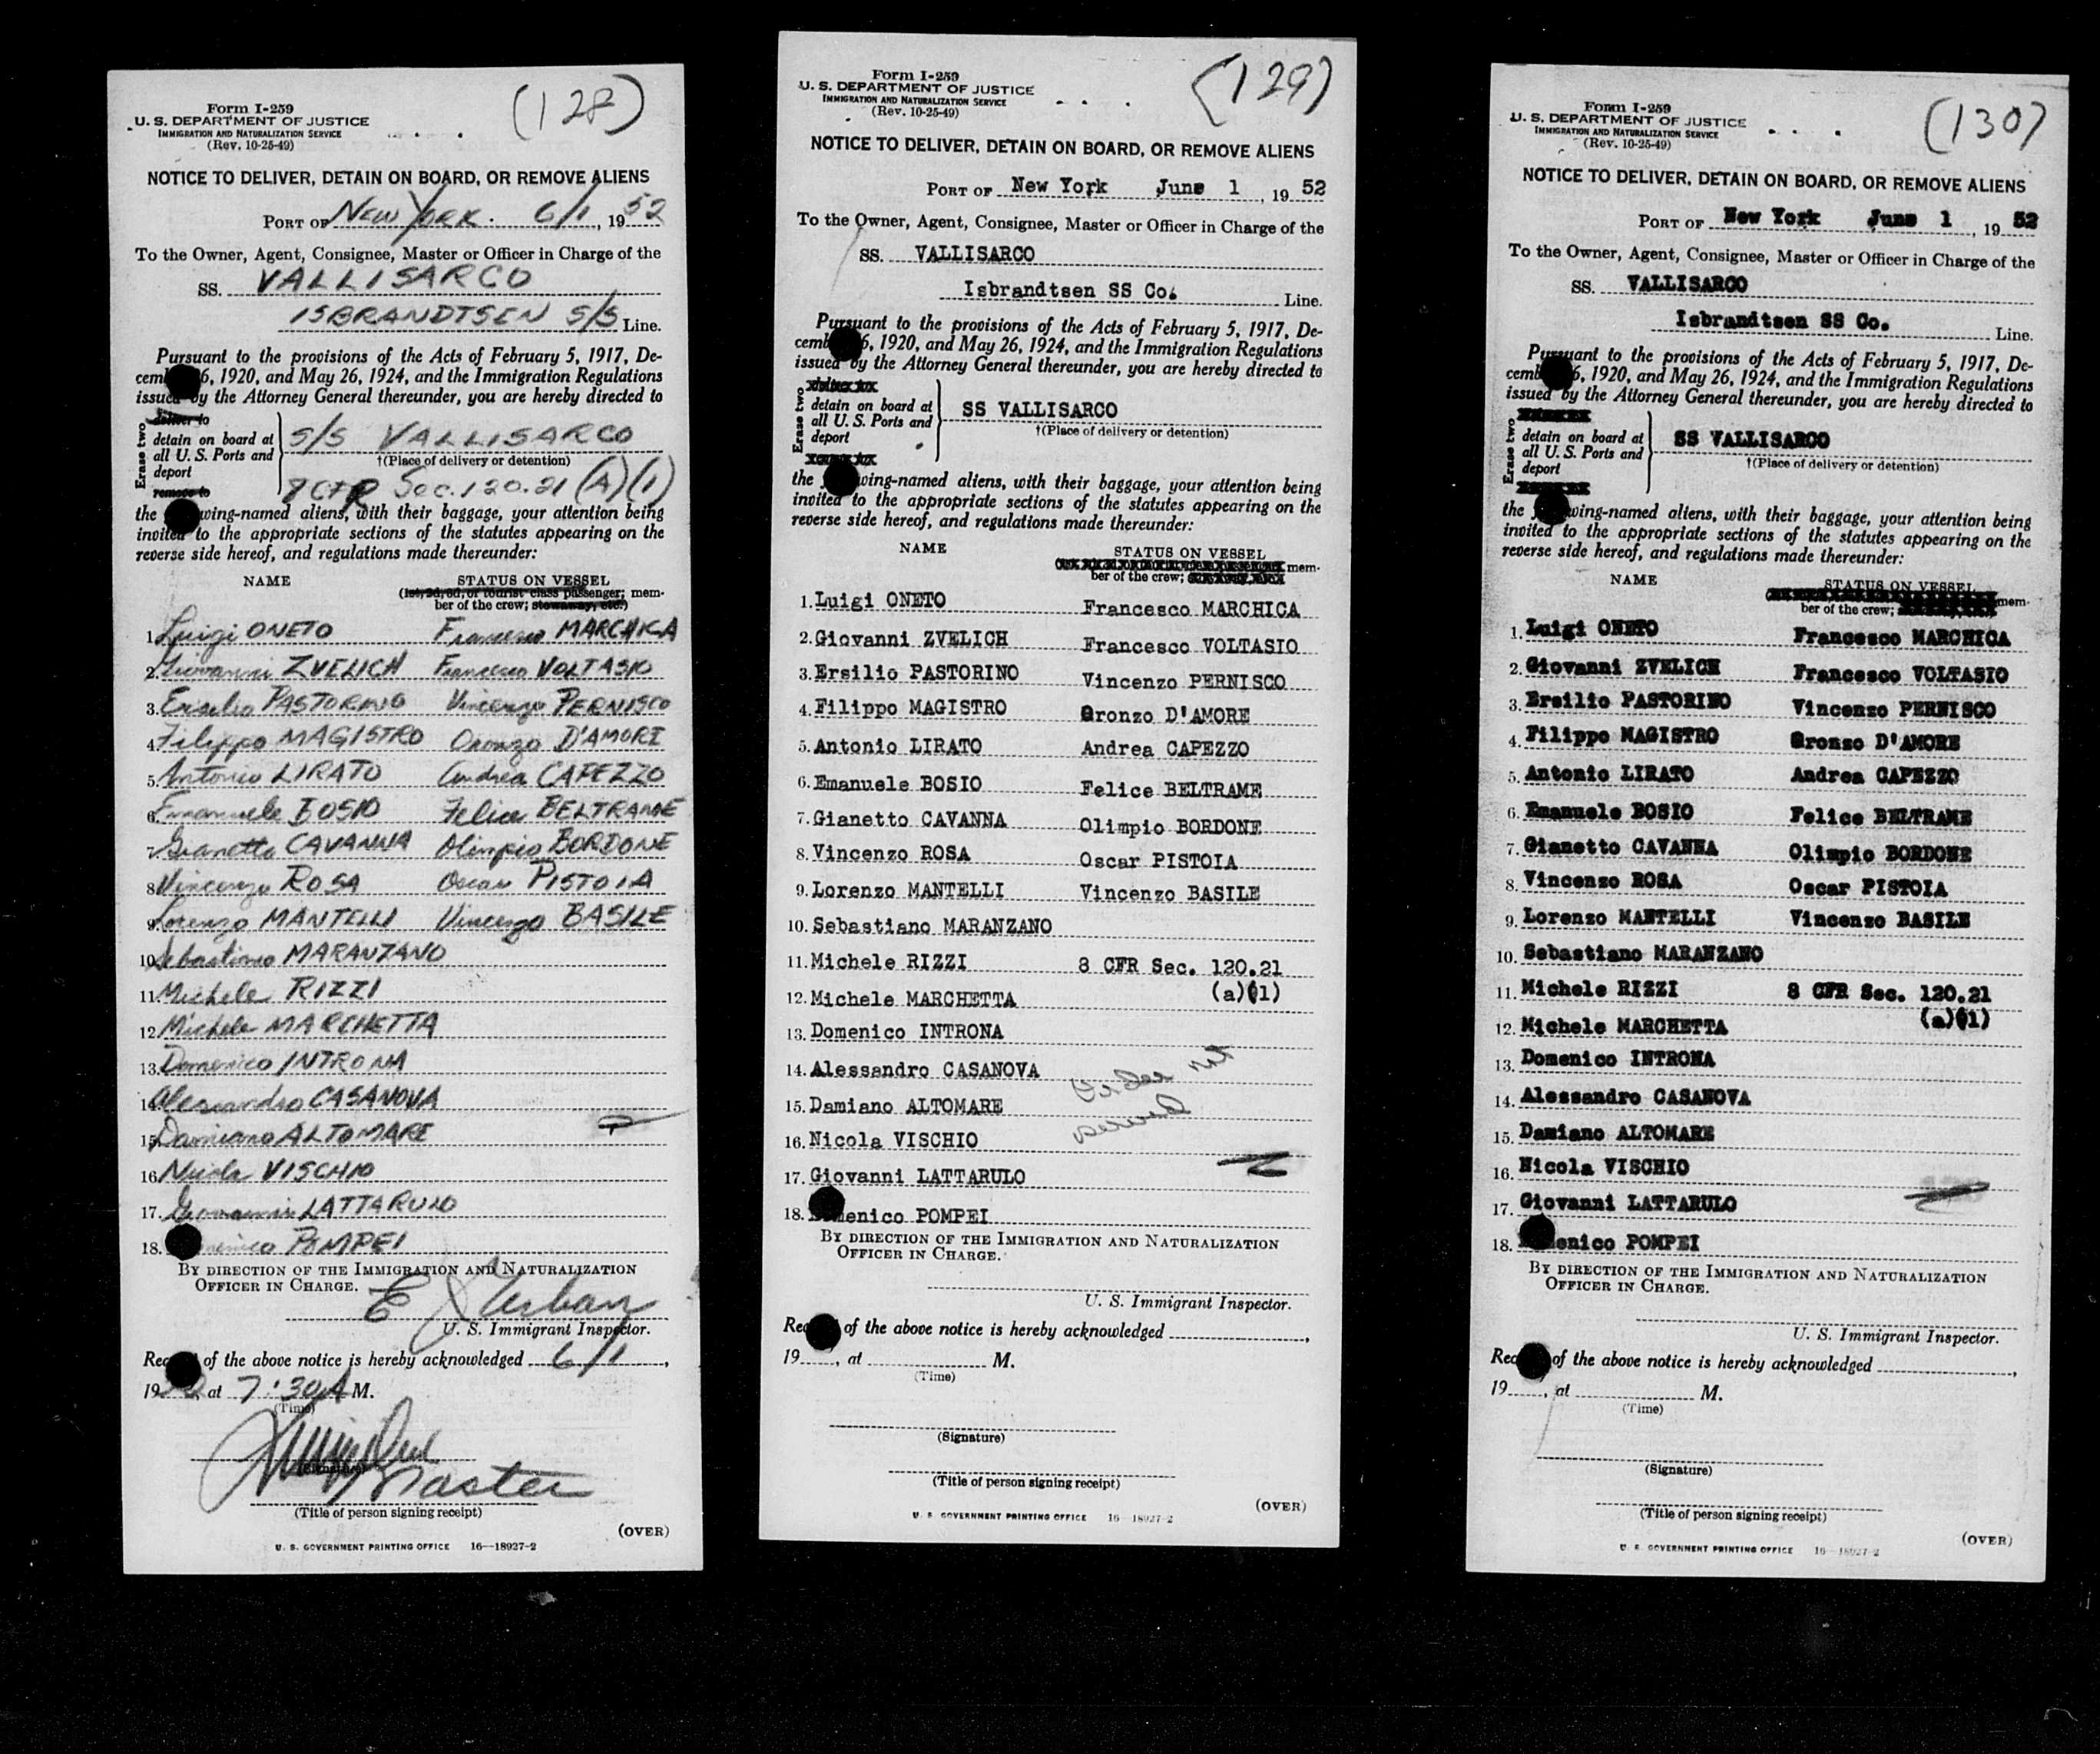 (128)
Form I-259
U. S. DEPARTMENT OF JUSTICE
IMMIGRATION AND NATURALIZATION SERVICE
(Rev. 10-25-49)
NOTICE TO DELIVER, DETAIN ON BOARD, OR REMOVE ALIENS
PORT OF NEW YORK. 6/1, 1952
To the Owner, Agent, Consignee, Master or Officer in Charge of the
SS. VALLISARCO
ISBRANDTSEN S/S Line.
Pursuant to the provisions of the Acts of February 5, 1917, De-
cemb 6, 1920, and May 26, 1924, and the Immigration Regulations
issued by the Attorney General thereunder, you are hereby directed to
Erase two
deliver to
detain on board at
all U. S. Ports and
deport
remove to
S/S VALLISARCO
†(Place of delivery or detention)
8 CFR Sec. 120.21 (A)(1)
the wing-named aliens, with their baggage, your attention being
invited to the appropriate sections of the statutes appearing on the
reverse side hereof, and regulations made thereunder:
NAME STATUS ON VESSEL
(1st, 2d, 3d, or tourist class passenger; mem-
ber of the crew; stowaway, etc.)
1. Luigi ONETO Francesco MARCHICA
2. Giovanni ZVELICH Francesco VOLTASIO
3. Ersilio PASTORINO Vincenzo PERNISCO
4. Filippo MAGISTRO Oronzo D'AMORE
5. Antonio LIRATO Andrea CAPEZZO
6. Emanuele BOSIO Felice BELTRAME
7. Gianetto CAVANNA Olimpio BORDONE
8. Vincenzo ROSA Oscar PISTOIA
9. Lorenzo MANTELLI Vincenzo BASILE
10. Sebastiano MARANZANO
11. Michele RIZZI
12. Michele MARCHETTA
13. Domenico INTRONA
14. Alessandro CASANOVA
15. Damiano ALTOMARE
16. Nicola VISCHIO
17. Giovanni LATTARULO
18. menico POMPEI
BY DIRECTION OF THE IMMIGRATION AND NATURALIZATION
OFFICER IN CHARGE.
E J Urban
U. S. Immigrant Inspector.
Rec of the above notice is hereby acknowledged 6/1,
19 at 7:30 A M.
(Time)
(Signature)
Master
(Title of person signing receipt)
(OVER)
U. S. GOVERNMENT PRINTING OFFICE 16—18927-2
(129)
Form I-259
U. S. DEPARTMENT OF JUSTICE
IMMIGRATION AND NATURALIZATION SERVICE
(Rev. 10-25-49)
NOTICE TO DELIVER, DETAIN ON BOARD, OR REMOVE ALIENS
PORT OF New York June 1, 1952
To the Owner, Agent, Consignee, Master or Officer in Charge of the
SS. VALLISARCO
Isbrandtsen SS Co. Line.
Pursuant to the provisions of the Acts of February 5, 1917, De-
cemb 6, 1920, and May 26, 1924, and the Immigration Regulations
issued by the Attorney General thereunder, you are hereby directed to
Erase two
detain on board at
all U. S. Ports and
deport
SS VALLISARCO
†(Place of delivery or detention)
the wing-named aliens, with their baggage, your attention being
invited to the appropriate sections of the statutes appearing on the
reverse side hereof, and regulations made thereunder:
NAME STATUS ON VESSEL
mem-
ber of the crew;
1. Luigi ONETO Francesco MARCHICA
2. Giovanni ZVELICH Francesco VOLTASIO
3. Ersilio PASTORINO Vincenzo PERNISCO
4. Filippo MAGISTRO Oronzo D'AMORE
5. Antonio LIRATO Andrea CAPEZZO
6. Emanuele BOSIO Felice BELTRAME
7. Gianetto CAVANNA Olimpio BORDONE
8. Vincenzo ROSA Oscar PISTOIA
9. Lorenzo MANTELLI Vincenzo BASILE
10. Sebastiano MARANZANO
11. Michele RIZZI 8 CFR Sec. 120.21
12. Michele MARCHETTA (a)(1)
13. Domenico INTRONA
14. Alessandro CASANOVA
15. Damiano ALTOMARE
16. Nicola VISCHIO
17. Giovanni LATTARULO
18. menico POMPEI
Order not
served
BY DIRECTION OF THE IMMIGRATION AND NATURALIZATION
OFFICER IN CHARGE.
U. S. Immigrant Inspector.
Rec of the above notice is hereby acknowledged ,
19 , at M.
(Time)
(Signature)
(Title of person signing receipt)
(OVER)
U. S. GOVERNMENT PRINTING OFFICE 16—18927-2
(130)
Form I-259
U. S. DEPARTMENT OF JUSTICE
IMMIGRATION AND NATURALIZATION SERVICE
(Rev. 10-25-49)
NOTICE TO DELIVER, DETAIN ON BOARD, OR REMOVE ALIENS
PORT OF New York June 1, 1952
To the Owner, Agent, Consignee, Master or Officer in Charge of the
SS. VALLISARCO
Isbrandtsen SS Co. Line.
Pursuant to the provisions of the Acts of February 5, 1917, De-
cemb 6, 1920, and May 26, 1924, and the Immigration Regulations
issued by the Attorney General thereunder, you are hereby directed to
Erase two
detain on board at
all U. S. Ports and
deport
SS VALLISARCO
†(Place of delivery or detention)
the wing-named aliens, with their baggage, your attention being
invited to the appropriate sections of the statutes appearing on the
reverse side hereof, and regulations made thereunder:
NAME STATUS ON VESSEL
mem-
ber of the crew;
1. Luigi ONETO Francesco MARCHICA
2. Giovanni ZVELICH Francesco VOLTASIO
3. Ersilio PASTORINO Vincenzo PERNISCO
4. Filippo MAGISTRO Oronzo D'AMORE
5. Antonio LIRATO Andrea CAPEZZO
6. Emanuele BOSIO Felice BELTRAME
7. Gianetto CAVANNA Olimpio BORDONE
8. Vincenzo ROSA Oscar PISTOIA
9. Lorenzo MANTELLI Vincenzo BASILE
10. Sebastiano MARANZANO
11. Michele RIZZI 8 CFR Sec. 120.21
12. Michele MARCHETTA (a)(1)
13. Domenico INTRONA
14. Alessandro CASANOVA
15. Damiano ALTOMARE
16. Nicola VISCHIO
17. Giovanni LATTARULO
18. menico POMPEI
BY DIRECTION OF THE IMMIGRATION AND NATURALIZATION
OFFICER IN CHARGE.
U. S. Immigrant Inspector.
Rec of the above notice is hereby acknowledged ,
19 , at M.
(Time)
(Signature)
(Title of person signing receipt)
(OVER)
U. S. GOVERNMENT PRINTING OFFICE 16—18927-2